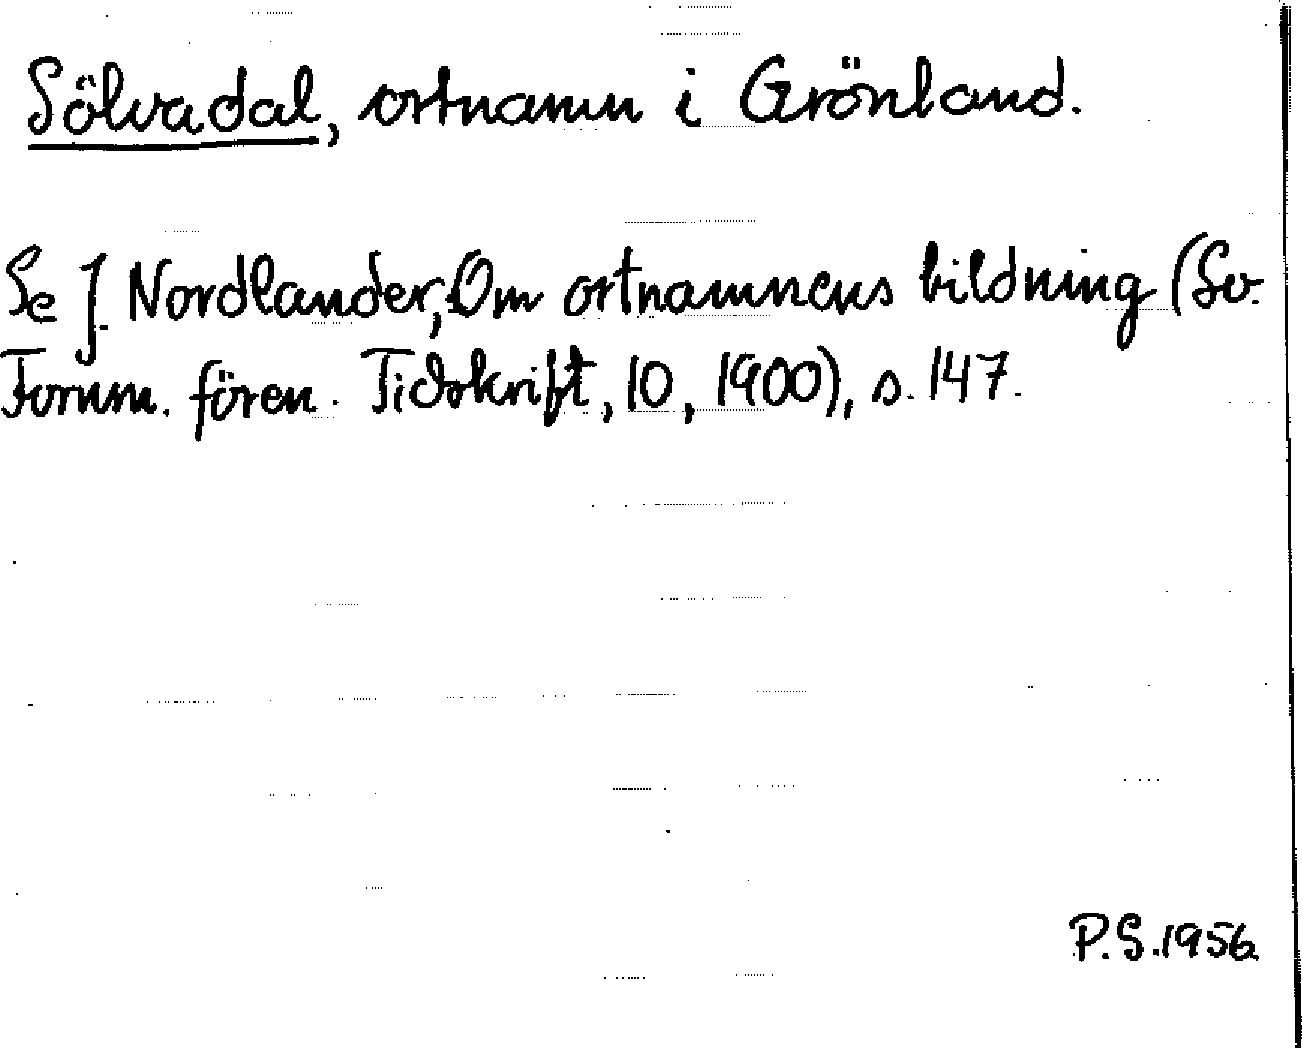 Sölvadal, ortnamn i Grönland.
Se J. Nordlander, Om ortnamnens bildning (Sv.
Fornm. fören. Tidskrift, 10, 1900), s. 147.
P.S. 1956